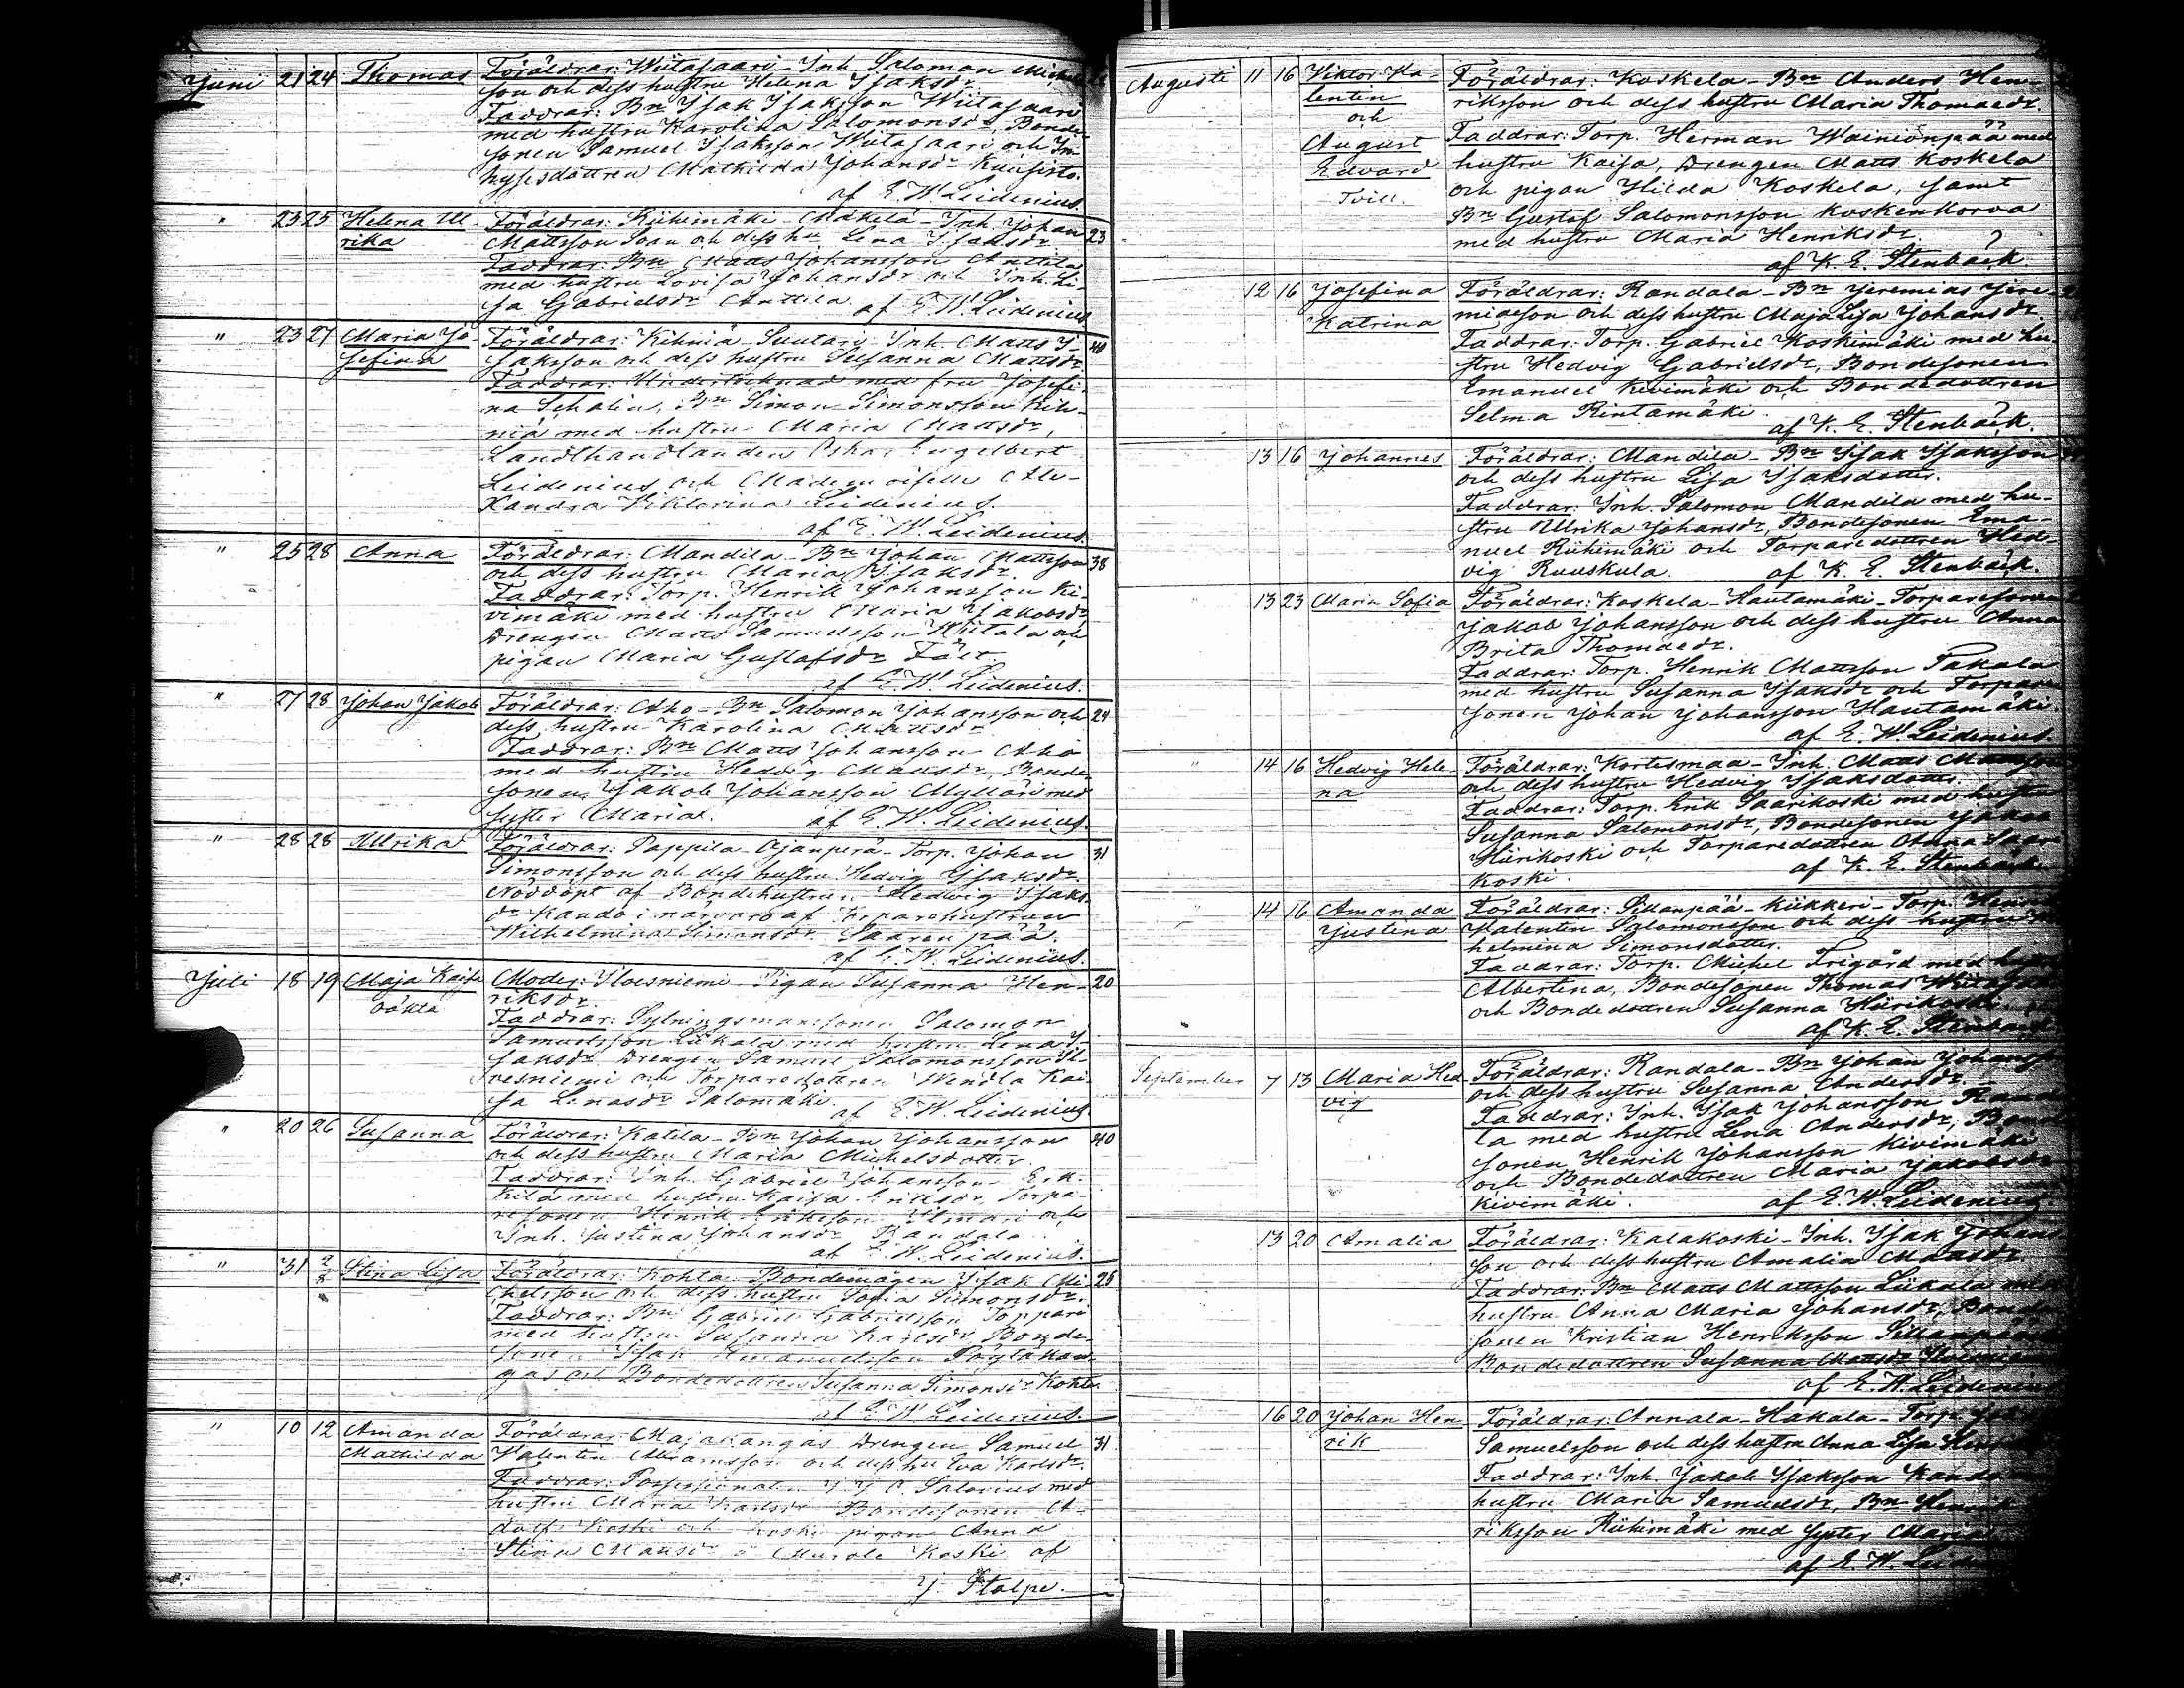 Juni 21 24 Thomas Föräldrar: Wiitasaari - Inh. Salomon Michels
son och dess hustru Helena Isaksdr.
Faddrar: Bn Isak Isaksson Wiitasaari
med hustru Karolina Salomonsdr, Bonde-
sonen Samuel Isaksson Wiitasaari och In-
hysesdottren Mathilda Johansdr Kuusisto.
af E. W. Leidenius.
" 23 25 Helena Ul- Föräldrar: Riihimäki - Mäkelä - Inh. Johan 23
rika Mattsson och dess hu Lena Isaksdr.
Faddrar: Bn Matts Johansson Anttila
med hustru Lovisa Johansdr och Inh. Li-
sa Gabrielsdr Anttila. af E. W. Leidenius.
" 23 27 Maria Jo- Föräldrar: Kihniä - Suutari Inh. Matts I- 40
sefina saksson och dess hustru Susanna Mattsdr.
Faddrar: Undertecknad med fru Josefi-
na Schalin, Bn Simon Simonsson Kih-
niä med hustru Maria Mattsdr,
Landthandlanden Oskar Engelbert
Leidenius och Mademoiselle Ale-
xandra Viktorina Leidenius.
af E. W. Leidenius.
" 25 28 Anna Föräldrar: Mandila - Bn Johan Mattsson 38
och dess hustru Maria Isaksdr.
Faddrar: Torp. Henrik Johansson Ki-
vimäki med hustru Maria Jakobsdr,
Drengen Matts Samuelsson Wiitala och
pigan Maria Gustafsdr Fält.
af E. W. Leidenius.
" 27 28 Johan Jakob Föräldrar: Aho - Bn Salomon Johansson och 24
dess hustru Karolina Mattsdr.
Faddrar: Bn Matts Johansson Aho
med hustru Hedvig Mattsdr, Bonde-
sonen Jakob Johansson Mylläri med
syster Maria. af E. W. Leidenius.
" 28 28 Ullrika Föräldrar: Pappila - Ojanperä - Torp. Johan 31
Simonsson och dess hustru Hedvig Isaksdr.
Nöddöpt af Bondehustrun Hedvig Isaks-
dr Kando i närvaro af Torparehustrun
Wilhelmina Simonsdr Saarenpää.
af E. W. Leidenius.
Juli 18 19 Maja Kaisa Moder: Ilvesniemi - Pigan Susanna Hen- 20
oäkta riksdr.
Faddrar: Sytningsmanssonen Salomon
Samuelsson Liikala med hustru Lena I-
saksdr, Drengen Samuel Salomonsson Il-
vesniemi och Torparedottren Wendla Kai-
sa Lenasdr Salomäki. af E. W. Leidenius.
" 20 26 Susanna Föräldrar: Katila - Bn Johan Johansson 40
och dess hustru Maria Michelsdotter.
Faddrar: Inh. Gabriel Johansson Erk-
kilä med hustru Kaisa Eriksdr, Torpa-
resonen Henrik Eriksson Ilmari och
Inh. Justina Johansdr Randala.
af E. W. Leidenius.
" 31 2/8 Stina Lisa Föräldrar: Kohla - Bondemågen Isak Mi- 25
chelsson och dess hustru Sofia Simonsdr.
Faddrar: Bn Gabriel Gabrielsson Toppari
med hustru Susanna Karlsdr, Bonde-
sonen Isak Emanuelsson Pöytäkan-
gas och Bondedottren Susanna Simonsdr Kohla.
af E. W. Leidenius.
" 10 12 Amanda Föräldrar: Majakangas Drengen Samuel 31
Mathilda Valentin Abramsson och dess hu Eva Karlsdr.
Faddrar: Possessionaten Salovius med
hustru Maria Karlsdr Bondesonen A-
dolf Koski och pigan Anna
Stina Mattsdr Koski af
J. Stolpe.
Augusti 11 16 Viktor Va- Föräldrar: Koskela - Bn Anders Hen-
lentin riksson och dess hustru Maria Thomaedr.
och Faddrar: Torp. Herman Wainionpää med
August hustru Kaisa, Drengen Matts Koskela
Edvard och pigan Hilda Koskela, samt
Tvill. Bn Gustaf Salomonsson Koskenkorva
med hustru Maria Henriksdr.
af K. E. Stenbäck.
12 16 Josefina Föräldrar: Randala - Bn Jeremias Jere-
Katrina miasson och dess hustru Maja Lisa Johansdr.
Faddrar: Torp. Gabriel Koskimäki med hu-
stru Hedvig Gabrielsdr, Bondesonen
Emanuel Kivimäki och Bondedottren
Selma Rintamäki.
af K. E. Stenbäck.
13 16 Johannes Föräldrar: Mandila - Bn Isak Isaksson
och dess hustru Lisa Isaksdotter.
Faddrar: Inh. Salomon Mandila med hu-
stru Ullrika Johansdr, Bondesonen Ema-
nuel Riihimäki och Torparedottren Hed-
vig Ruuskula. af K. E. Stenbäck.
" 13 23 Maria Sofia Föräldrar: Koskela - Hautamäki - Torparesonen
Jakob Johansson och dess hustru Anna
Brita Thomaedr.
Faddrar: Torp. Henrik Mattsson Takala
med hustru Susanna Isaksdr och Torpare-
sonen Johan Johansson Hautamäki.
af E. W. Leidenius.
" 14 16 Hedvig Hele- Föräldrar: Kortesmaa - Inh. Matts Mattsson
na och dess hustru Hedvig Isaksdotter.
Faddrar: Torp. Erik Saarikoski med hustru
Susanna Salomonsdr, Bondesonen Jakob
Hiirikoski och Torparedottren Anna Saari-
koski. af K. E. Stenbäck.
" 14 16 Amanda Föräldrar: Sillanpää - Kiikkeri - Torp. Henrik
Justina Valentin Salomonsson och dess hustru Wil-
helmina Simonsdotter.
Faddrar: Torp. Michel Frigård med hustru
Albertina, Bondesonen Thomas
och Bondedottren Susanna Hiirikoski.
af K. E. Stenbäck.
September 7 13 Maria Hed- Föräldrar: Randala - Bn Johan Johansson
vig och dess hustru Susanna Andersdr.
Faddrar: Inh. Isak Johansson Randa-
la med hustru Lena Andersdr, Bonde-
sonen Henrik Johansson Kivimäki
och Bondedottren Maria Jakobsdr
Kivimäki. af E. W. Leidenius.
13 20 Amalia Föräldrar: Kalakoski - Inh. Isak Johans-
son och dess hustru Amalia Mattsdr.
Faddrar: Bn Matts Mattsson Liikala med
hustru Anna Maria Johansdr, Bonde-
sonen Kristian Henriksson Sillanpää
Bondedottren Susanna Mattsdr
af E. W. Leidenius.
16 20 Johan Hen- Föräldrar: Annala - Hakala - Torp.
rik Samuelsson och dess hustru Anna Lisa
Faddrar: Inh. Jakob Isaksson Kando
hustru Maria Samuelsdr, Bn Henrik
riksson Riihimäki med syster Maria
af E. W.